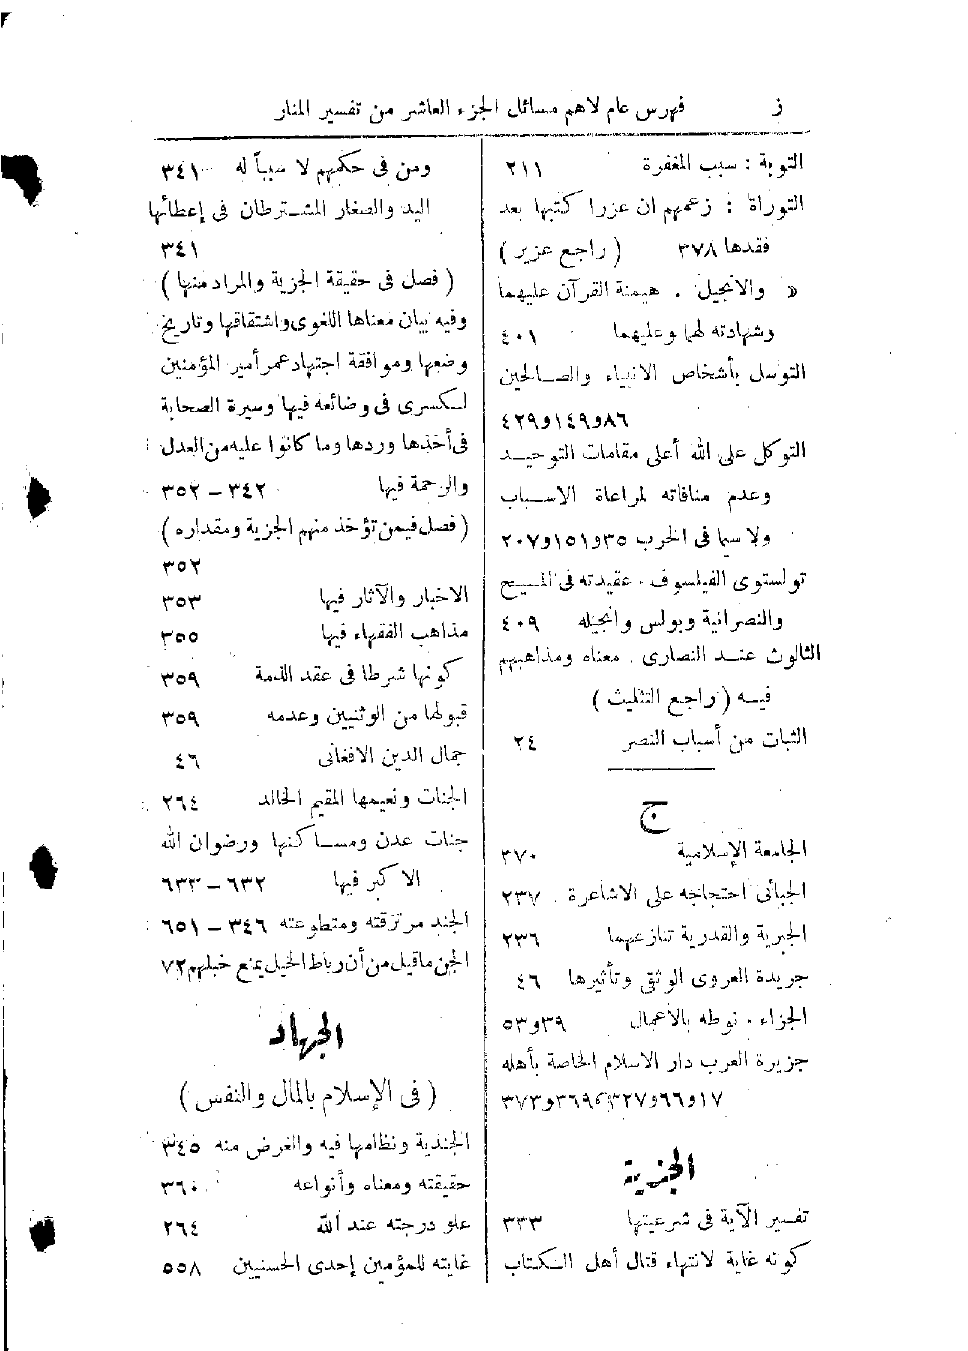 ز فهرس عام لاهم مسائل الجزء العاشر من تفسير المنار
التوبة : سبب المغفرة ٢١١
التوراة : زعمهم ان عزرا كتبها بعد
فقدها ٣٧٨ ( راجع عزير )
« والانجيل . هيمنة القرآن عليهما
وشهادته لهما وعليهما ٤٠١
التوسل بأشخاص الانبياء والصالحين
٨٦و١٤٩و٤٢٩
التوكل على الله أعلى مقامات التوحيد
وعدم منافاته لمراعاة الاسباب
ولا سيما فى الحرب ٣٥و١٥١و٢٠٧
تولستوى الفيلسوف . عقيدته فى المسيح
والنصرانية وبولس وانجيله ٤٠٩
الثالوث عند النصارى . معناه ومذاهبهم
فيه ( راجع التثليث )
الثبات من أسباب النصر ٢٤
ج
الجامعة الإسلامية ٣٧٠
الجبائى احتجاجه على الاشاعرة ٢٣٧
الجبرية والقدرية تنازعهما ٢٣٦
جريدة العروى الوثقى وتأثيرها ٤٦
الجزاء . نوطه بالأعمال ٣٩و٥٣
جزيرة العرب دار الاسلام الخاصة بأهله
١٧و٦٦و٣٢٧و٣٦٩و٣٧٣
الجزية
تفسير الآية فى شرعيتها ٣٣٣
كونه غاية لانتهاء قتال أهل الكتاب
ومن فى حكمهم لا سبباً له ٣٤١
اليد والصغار المشترطان فى إعطائها
٣٤١
( فصل فى حقيقة الجزية والمراد منها )
وفيه بيان معناها اللغوى واشتقاقها وتاريخ
وضعها وموافقة اجتهاد عمر أمير المؤمنين
لكسرى فى وضائعه فيها وسيرة الصحابة
فى أخذها وردها وما كانوا عليه من العدل
والرحمة فيها ٣٤٢ – ٣٥٢
( فصل فيمن تؤخذ منهم الجزية ومقداره )
٣٥٢
الاخبار والآثار فيها ٣٥٣
مذاهب الفقهاء فيها ٣٥٥
كونها شرطا فى عقد الذمة ٣٥٩
قبولها من الوثنيين وعدمه ٣٥٩
جمال الدين الافغانى ٤٦
الجنات ونعيمها المقيم الخالد ٢٦٤
جنات عدن ومساكنها ورضوان الله
الاكبر فيها ٦٣٢ – ٦٣٣
الجند مرتزقته ومتطوعته ٣٤٦ – ٦٥١
الجن ماقيل من أن رباط الخيل يمنع خبلهم ٧٢
الجهاد
( فى الإسلام بالمال والنفس )
الجندية ونظامها فيه والغرض منه ٣٤٥
حقيقته ومعناه وأنواعه ٣٦٠
علو درجته عند الله ٢٦٤
غايته للمؤمنين إحدى الحسنيين ٥٥٨